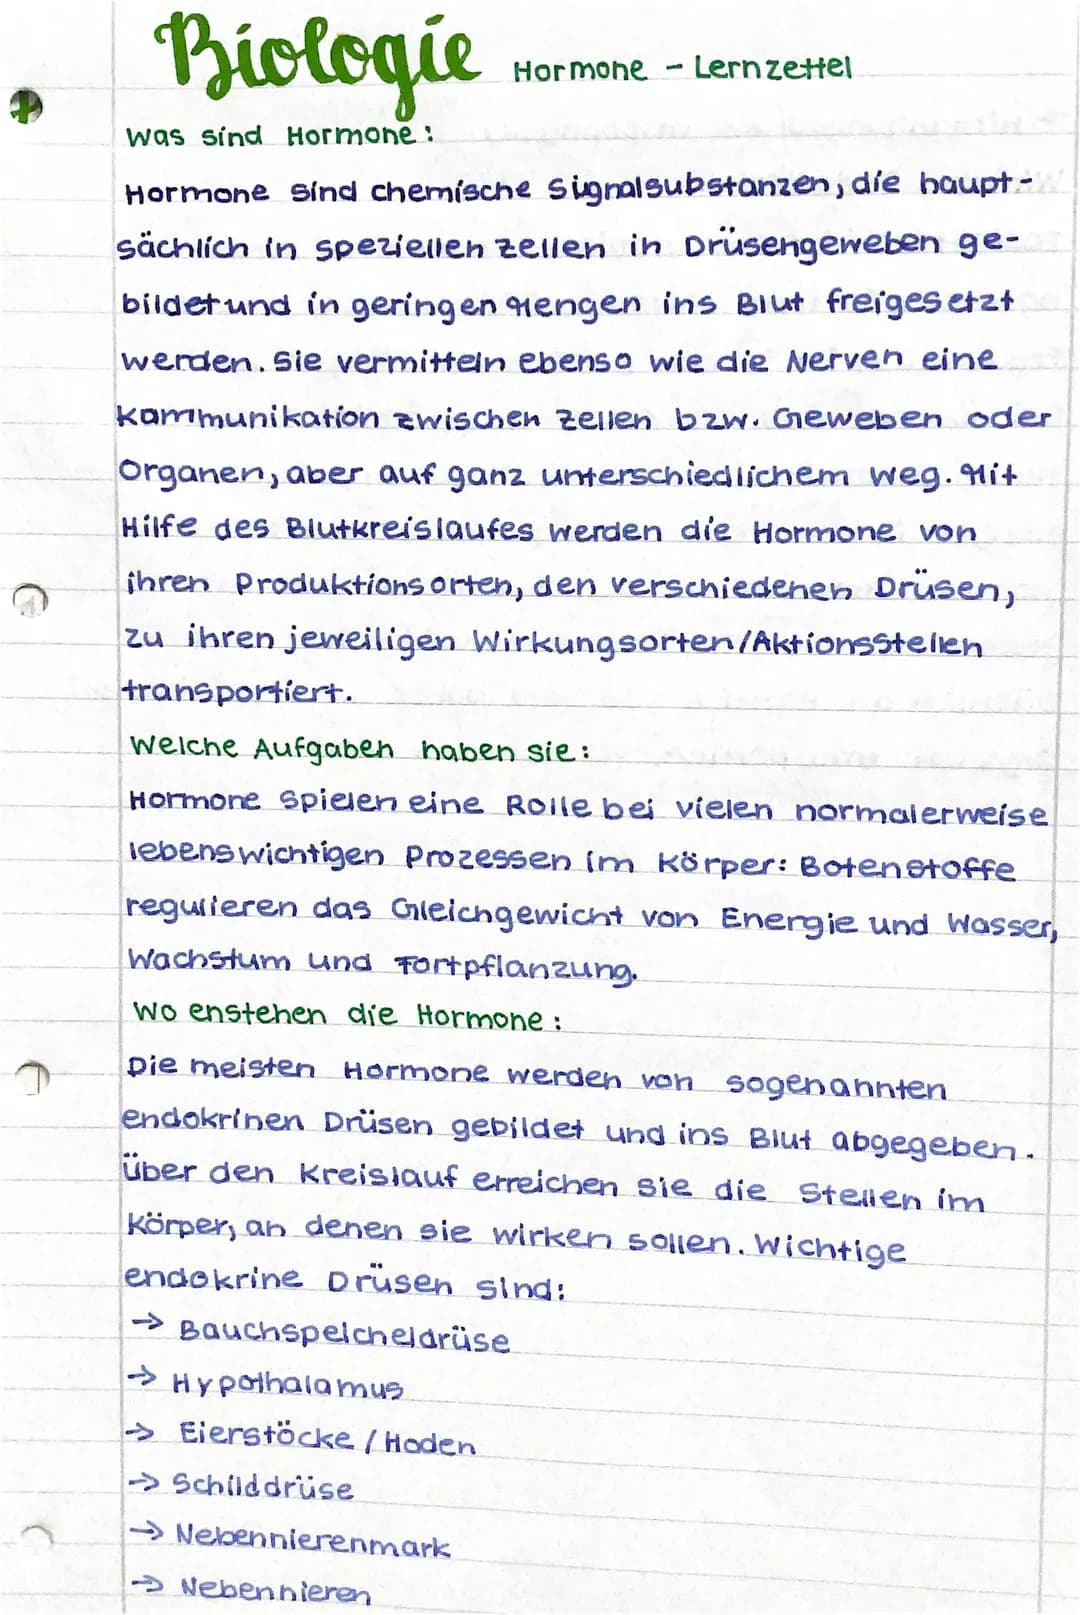 Biologie Hormone - Lernzettel
Was sind Hormone:
Hormone sind chemische Signalsubstanzen, die haupt-
sächlich in speziellen Zellen in Drüsengeweben ge-
bildet und in geringen Mengen ins Blut freigesetzt
werden. Sie vermitteln ebenso wie die Nerven eine
Kommunikation zwischen Zellen bzw. Geweben oder
Organen, aber auf ganz unterschiedlichem Weg. Mit
Hilfe des Blutkreislaufes werden die Hormone von
ihren Produktionsorten, den verschiedenen Drüsen,
zu ihren jeweiligen Wirkungsorten/Aktionsstellen
transportiert.
Welche Aufgaben haben sie:
Hormone spielen eine Rolle bei vielen normalerweise
lebenswichtigen Prozessen im Körper: Botenstoffe
regulieren das Gleichgewicht von Energie und Wasser,
Wachstum und Fortpflanzung.
Wo enstehen die Hormone:
Die meisten Hormone werden von sogenannten
endokrinen Drüsen gebildet und ins Blut abgegeben.
Über den Kreislauf erreichen sie die Stellen im
Körper, an denen sie wirken sollen. Wichtige
endokrine Drüsen sind:
→ Bauchspeicheldrüse
→ Hypothalamus
→ Eierstöcke / Hoden
→ Schilddrüse
→ Nebennierenmark
→ Nebennieren